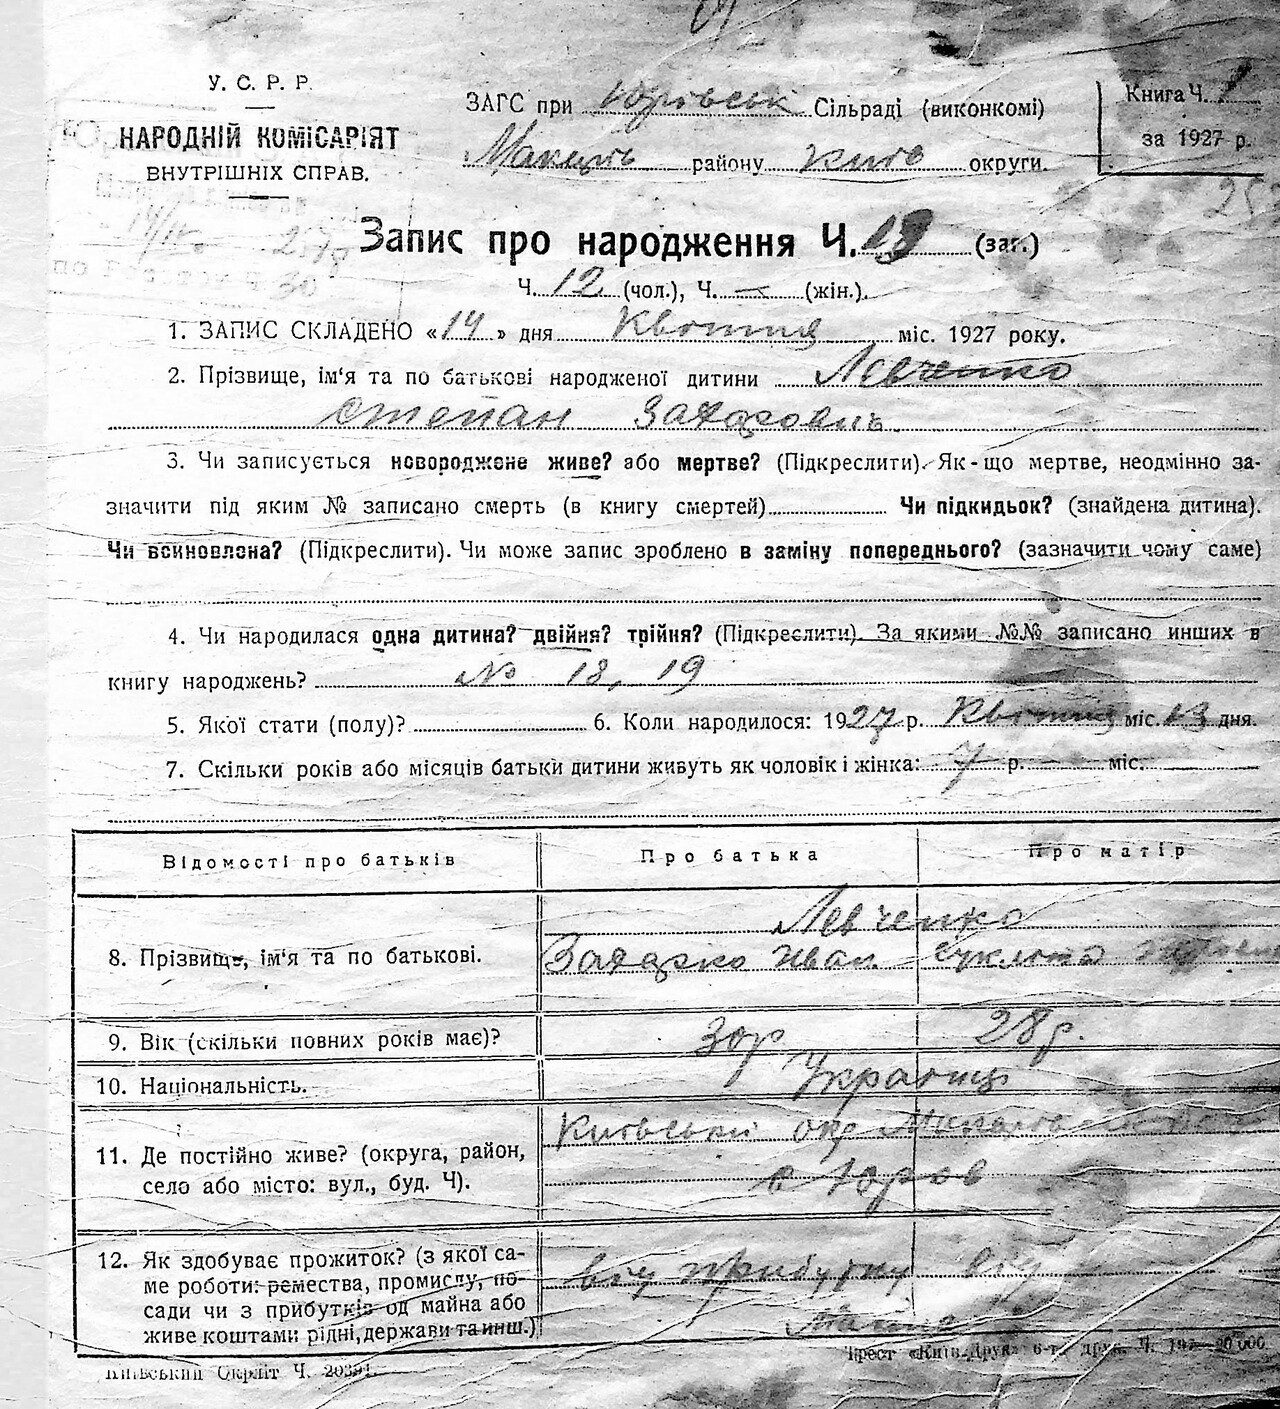 У. С. Р. Р.
НАРОДНІЙ КОМІСАРІЯТ
ВНУТРІШНІХ СПРАВ.
ЗАГС при Юрівськ Сільраді (виконкомі)
Макарів району Київ округи.
Книга Ч.
за 1927 р.
Запис про народження Ч. 18 (заг.)
Ч. 12 (чол.), Ч. — (жін.).
1. ЗАПИС СКЛАДЕНО «14» дня Квітня міс. 1927 року.
2. Прізвище, ім'я та по батькові народженої дитини Левченко
Степан Захарович
3. Чи записується новороджене живе? або мертве? (Підкреслити). Як-що мертве, неодмінно за-
значити під яким № записано смерть (в книгу смертей) Чи підкидьок? (знайдена дитина).
Чи всиновлена? (Підкреслити). Чи може запис зроблено в заміну попереднього? (зазначити чому саме)
4. Чи народилася одна дитина? двійня? трійня? (Підкреслити). За якими №№ записано инших в
книгу народжень? № 18, 19
5. Якої стати (полу)? 6. Коли народилося: 1927 р. Квітня міс. 13 дня.
7. Скільки років або місяців батьки дитини живуть як чоловік і жінка: 7 р. — міс.
Відомості про батьків
Про батька
Про матір
8. Прізвище, ім'я та по батькові.
Левченко
Захарко Иван.
9. Вік (скільки повних років має)?
30р
28р.
10. Національність.
Українці
11. Де постійно живе? (округа, район,
село або місто: вул., буд. Ч).
Київський окр
с Юров
12. Як здобуває прожиток? (з якої са-
ме роботи: ремества, промислу, по-
сади чи з прибутків од майна або
живе коштами рідні, держави та инш.)
прибутку
Київський Окрліт Ч. 20391.
Трест «Київ-Друк» 6-т. друк. Ч.